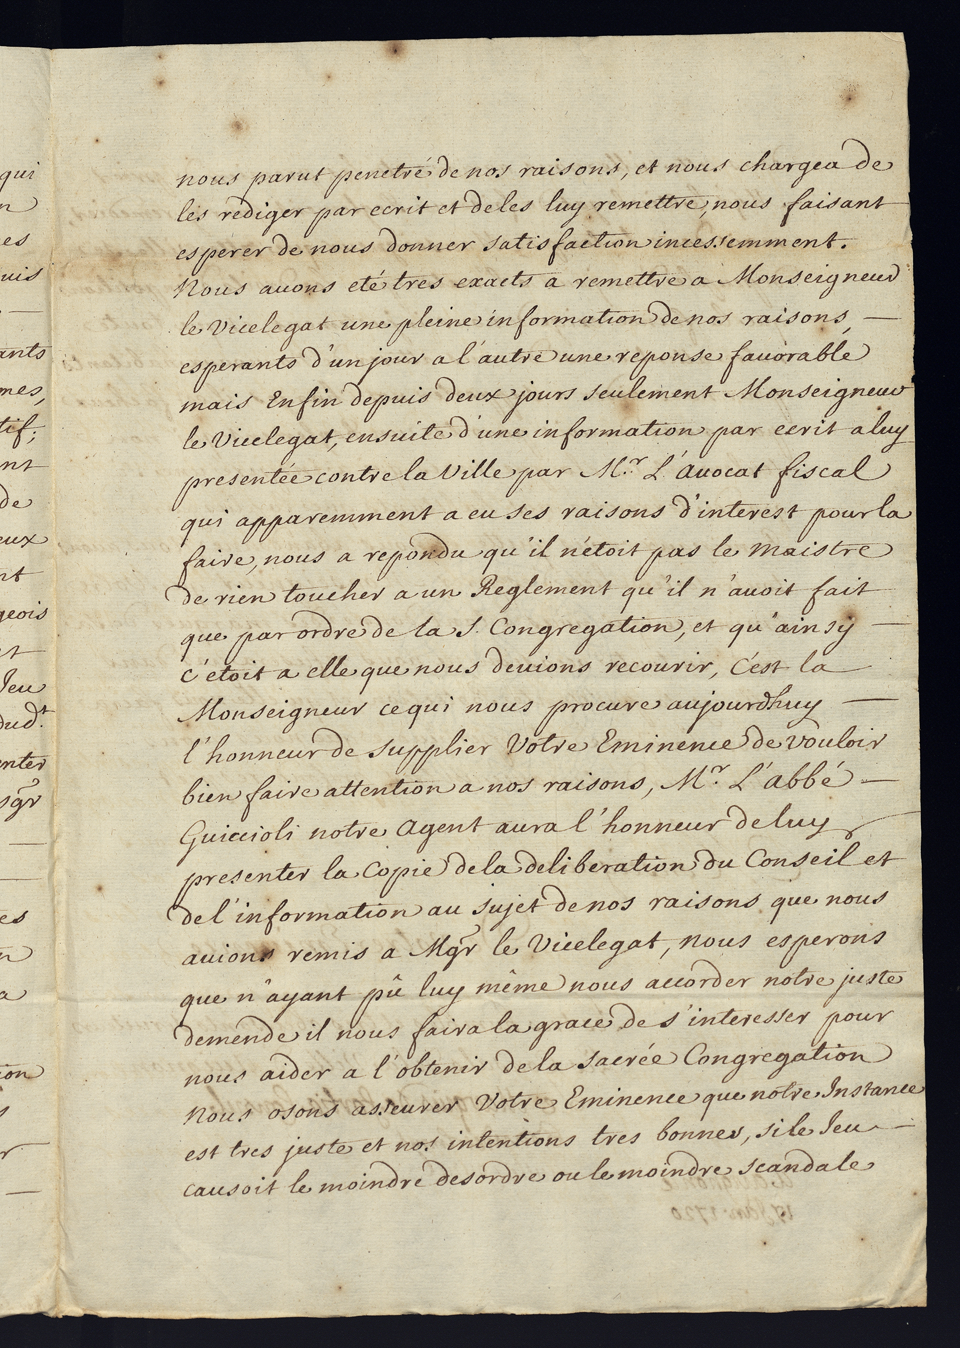 nous parut penetré de nos raisons, et nous chargea de
les rediger par ecrit et de les luy remettre, nous faisant
esperer de nous donner satisfaction incessemment.
Nous auons eté tres exacts a remettre a Monseigneur
le Vicelegat une pleine information de nos raisons, —
esperants d'un jour a l'autre une reponse fauorable
mais Enfin depuis deux jours seulement Monseigneur
le Vicelegat, ensuite d'une information par ecrit a luy
presentée contre la Ville par M.r L'Auocat fiscal
qui apparemment a eu ses raisons d'interest pour la
faire, nous a repondu qu'il n'etoit pas le maistre
de rien toucher a un Reglement qu'il n'auoit fait
que par ordre de la S. Congregation, et qu'ainsy —
c'etoit a elle que nous deuions recourir, C'est la —
Monseigneur ce qui nous procure aujourdhuy —
l'honneur de supplier Votre Eminence de Vouloir
bien faire attention a nos raisons, M.r L'abbé —
Guiccioli notre Agent aura l'honneur de luy
presenter la Copie de la deliberation du Conseil et
de l'information au sujet de nos raisons que nous
auions remis a Mgr le Vicelegat, nous esperons
que n'ayant pû luy même nous accorder notre juste
demende il nous faira la grace de s'interesser pour
nous aider a l'obtenir de la Sacrée Congregation
Nous osons asseurer Votre Eminence que notre Instance
est tres juste et nos intentions tres bonnes, si le Jeu —
causoit le moindre desordre ou le moindre scandale
qui
es
uis
ants
mes,
tif;
nt
de
eux
nt
geois
et
Jeu
dud.t
enter
Mgr
es
a
ion